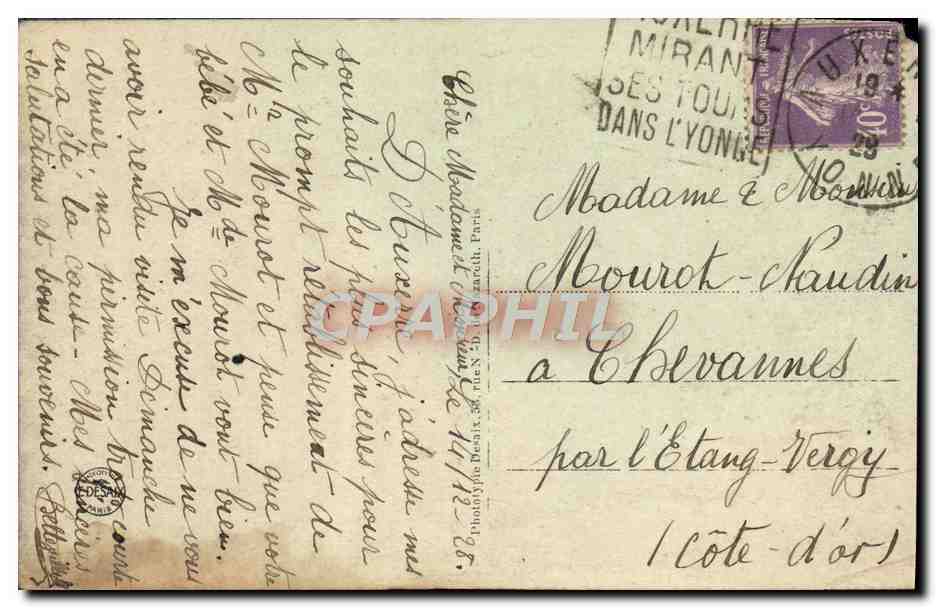 Chère Madame et Monsieur, Le 14/12-28.
D'Auxerre, j'adresse mes
souhaits les plus sincères pour
le prompt retablissement de
Mr Mourot et pense que votre
bébé et Mde Mourot vont bien.
Je m'excuse de ne vous
avoir rendu visite Dimanche
dernier, ma permission trop courte
en a été la cause - Mes sincères
salutations et bons souvenirs.
Phototypie Desaix, 38, rue N.-D. de Nazareth, Paris
DESAIX
PARIS
MIRANT
SES TOURS
DANS L'YONNE
40c
Madame & Monsieur
Mourot-Naudin
à Chevannes
par l'Etang-Vergy
(Côte-d'or)
CPAPHIL